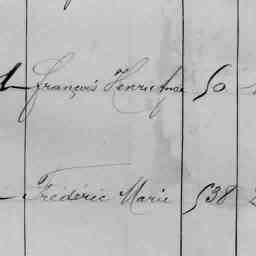 françois Henri 50
Frédéric Marie 538